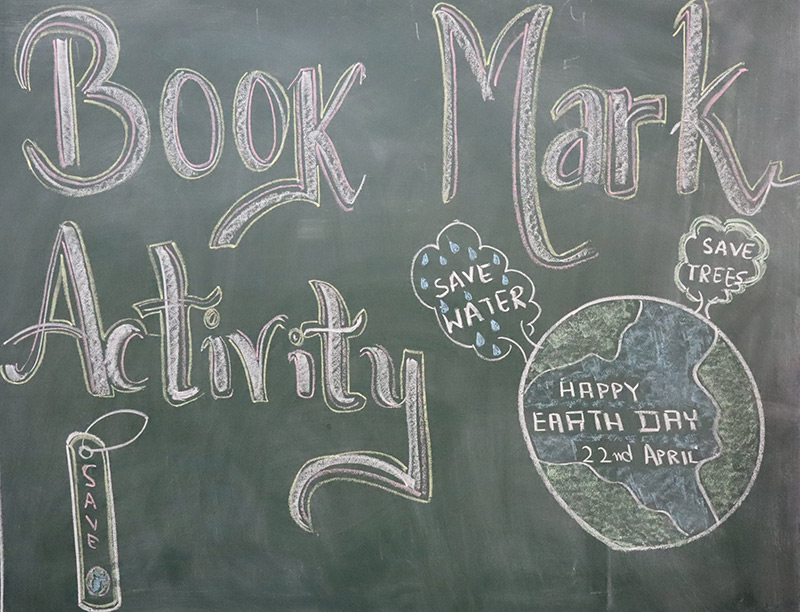 Book Mark
Activity
SAVE
WATER
SAVE
TREES
HAPPY
EARTH DAY
22nd APRIL
SAVE